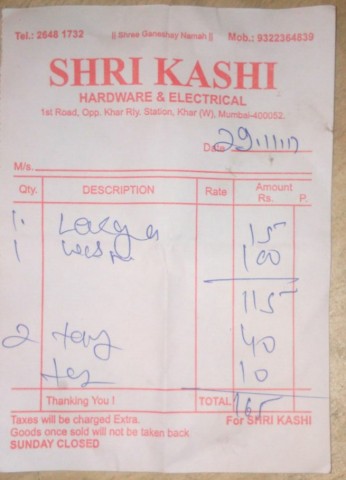 Tel.: 2648 1732 || Shree Ganeshay Namah || Mob.: 9322364839
SHRI KASHI
HARDWARE & ELECTRICAL
1st Road, Opp. Khar Rly. Station, Khar (W), Mumbai-400052.
Date 29/11/17
M/s.
Qty. DESCRIPTION Rate Amount
Rs. P.
1. 15
1 100
115
2 40
10
Thanking You ! TOTAL 165
Taxes will be charged Extra. For SHRI KASHI
Goods once sold will not be taken back
SUNDAY CLOSED